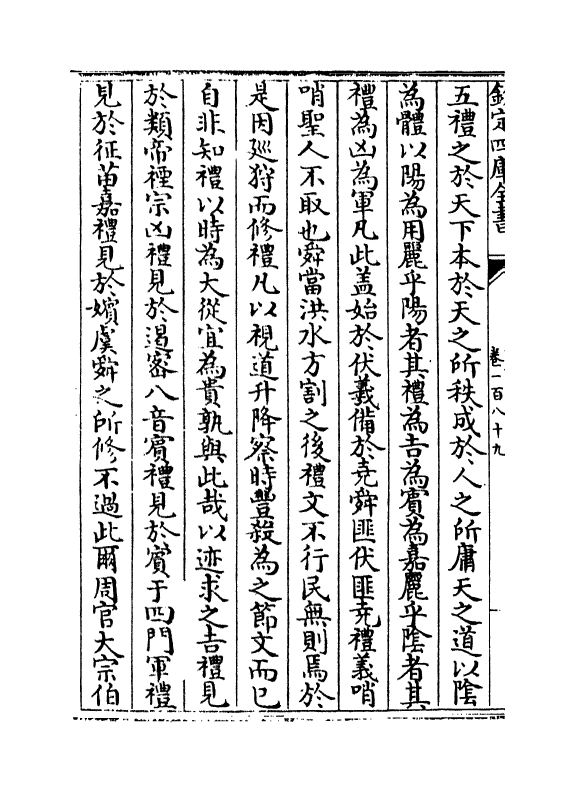 欽定四庫全書
卷一百八十九
五禮之於天下本於天之所秩成於人之所庸天之道以陰
為體以陽為用麗乎陽者其禮為吉為賓為嘉麗乎陰者其
禮為凶為軍凡此盖始於伏羲備於堯舜匪伏匪堯禮義哨
哨聖人不取也舜當洪水方割之後禮文不行民無則焉於
是因廵狩而修禮凡以視道升降察時豐殺為之節文而已
自非知禮以時為大從宜為貴孰與此哉以迹求之吉禮見
於類帝禋宗凶禮見於遏密八音賓禮見於賓于四門軍禮
見於征苗嘉禮見於嬪虞舜之所修不過此爾周官大宗伯